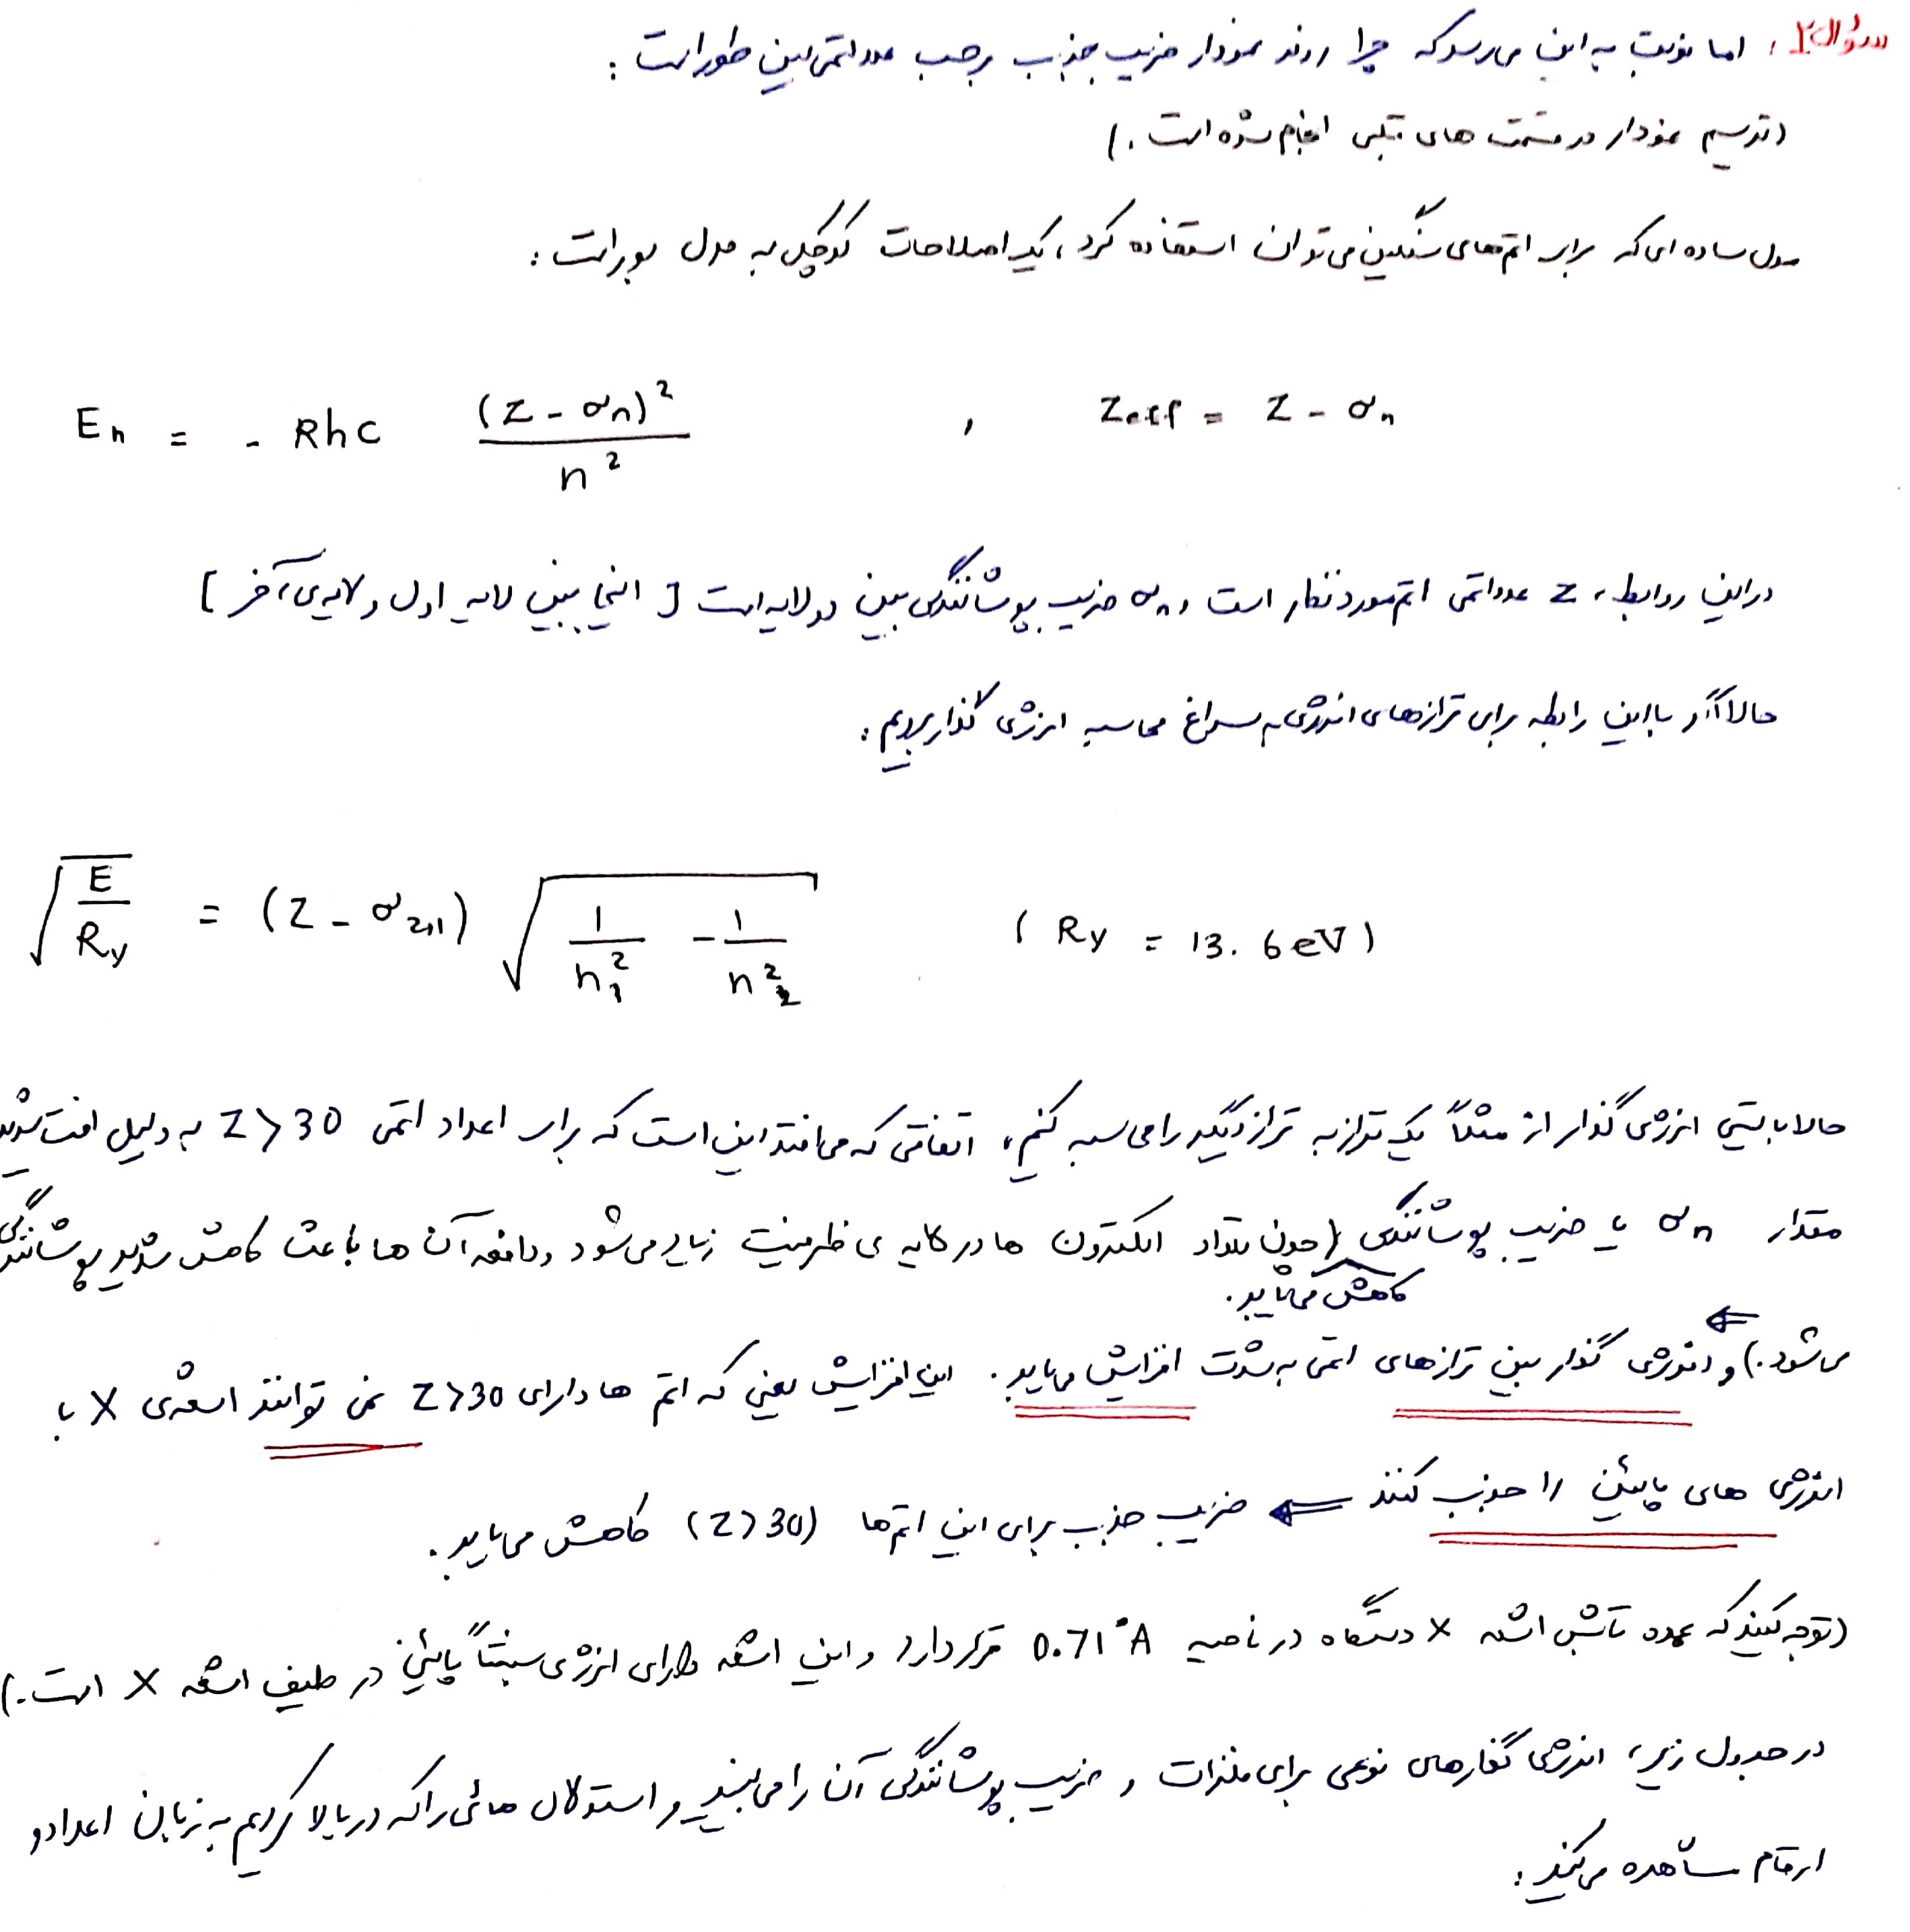 سؤال ۲: اما نوبت به این می‌رسد که چرا روند نمودار ضریب جذب برحسب عدد اتمی این طور است:
(ترسیم نمودار در قسمت های قبلی انجام شده است.)
مدل ساده ای که برای اتم‌های سنگین می‌توان استفاده کرد، یک اصلاحات کوچک به مدل بور است:
En = - Rhc (Z - σn)² / n² , Zeff = Z - σn
در این روابط، Z عدد اتمی اتم مورد نظر است و σn ضریب پوشانندگی بین دو لایه است [ اینجا بین لایه اول و لایه‌ی آخر ]
حالا اگر با این رابطه برای ترازهای انرژی به سراغ محاسبه انرژی گذار برویم:
√(E/Ry) = (Z - σ2,1) √(1/n₁² - 1/n₂²) ( Ry = 13.6 eV )
حالا بایستی انرژی گذار از مثلاً یک تراز به تراز دیگر را محاسبه کنیم، اتفاقی که می‌افتد این است که برای اعداد اتمی Z>30 به دلیل افت شدید
مقدار σn یا ضریب پوشانندگی (چون تعداد الکترون ها در لایه ی ظرفیت زیاد می‌شود و دافعه آن ها باعث کاهش شدید پوشانندگی
کاهش می‌یابد.
می‌شود.) و انرژی گذار بین ترازهای اتمی به شدت افزایش می‌یابد. این افزایش یعنی که اتم ها دارای Z>30 نمی توانند اشعه‌ی X با
انرژی های پایین را جذب کنند ⇐ ضریب جذب برای این اتم‌ها (Z>30) کاهش می‌یابد.
(توجه کنید که عمده تابش اشعه X دستگاه در ناحیه 0.71 °A قرار دارد و این اشعه دارای انرژی نسبتاً پائین در طیف اشعه X است.)
در جدول زیر، انرژی گذارهای نوعی برای فلزات و ضریب پوشانندگی آن را می‌بینید و استدلال هائی را که در بالا کردیم به زبان اعداد و
ارقام مشاهده می‌کنید: